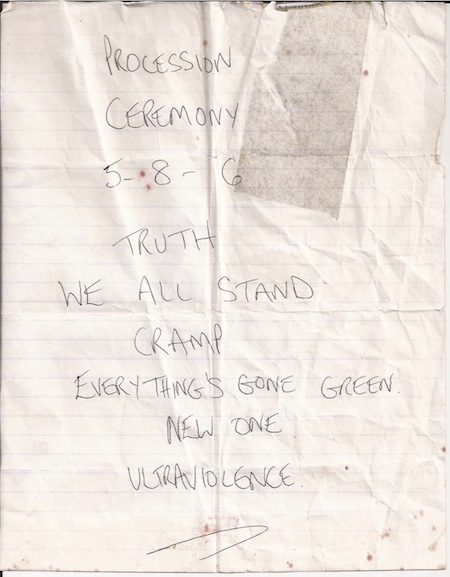 PROCESSION
CEREMONY
5-8-6
TRUTH
WE ALL STAND
CRAMP
EVERYTHING'S GONE GREEN.
NEW ONE.
ULTRAVIOLENCE.